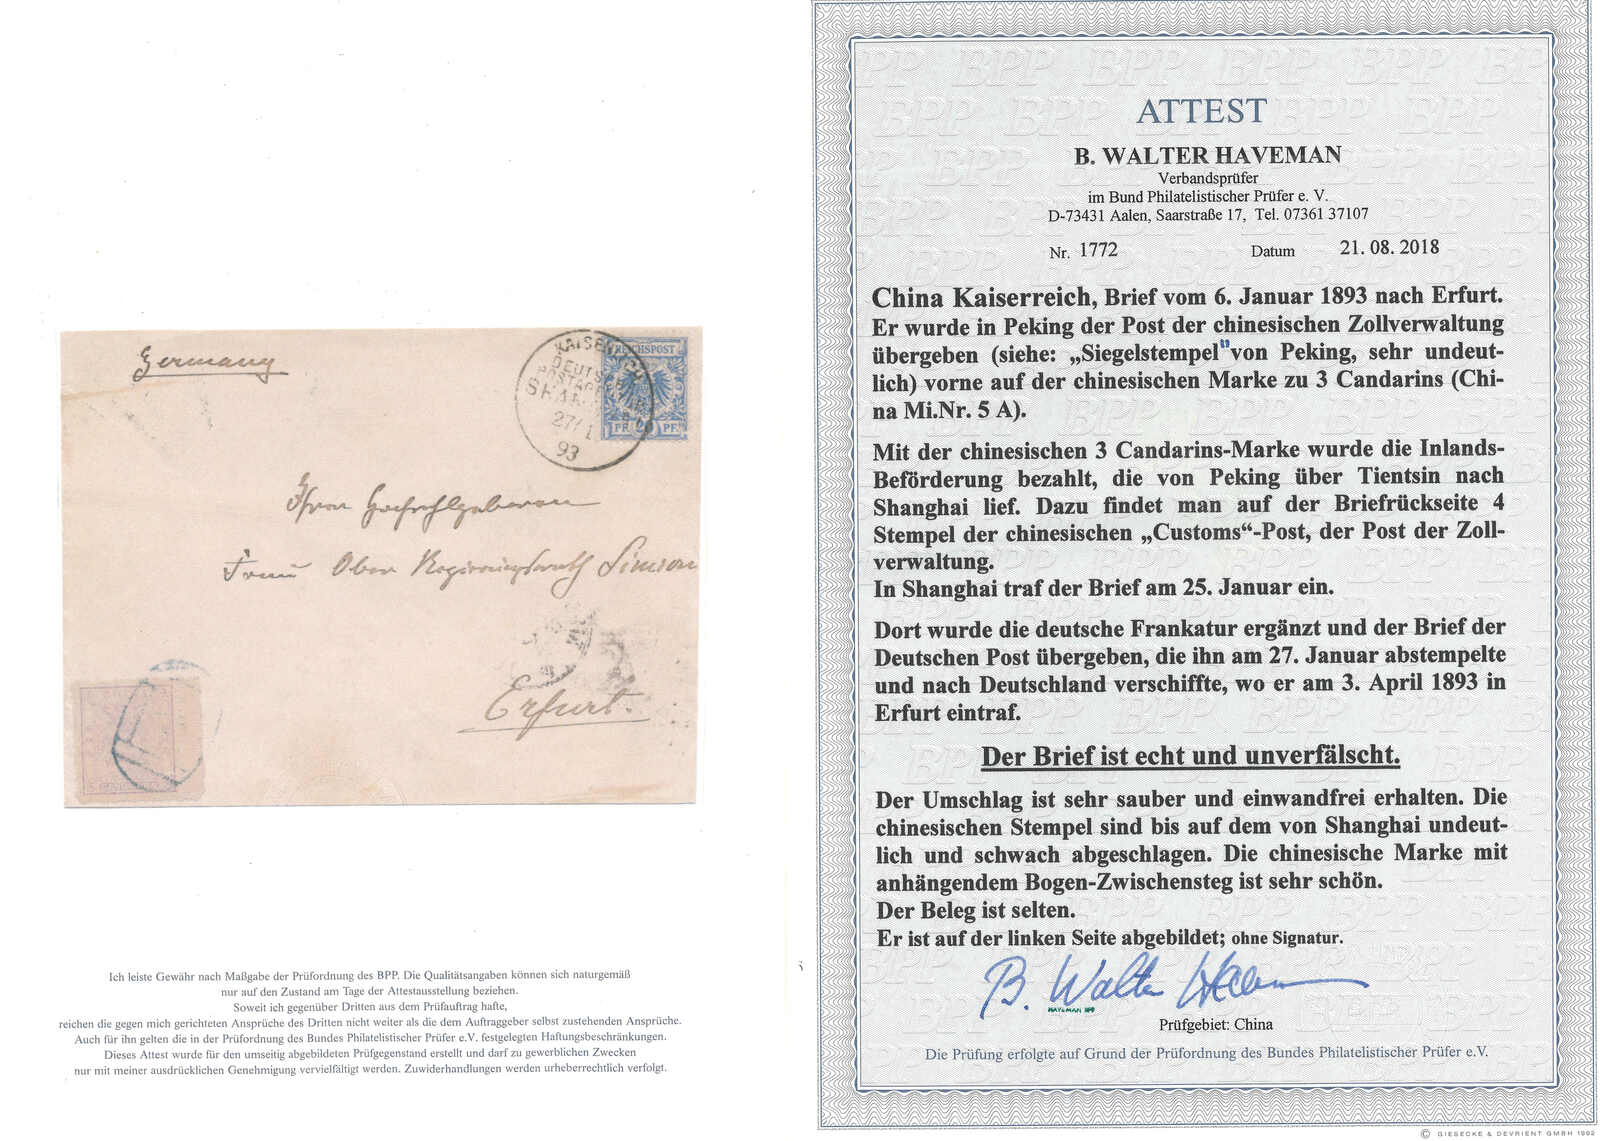 Germany
KAISERL.
DEUTSCHE
POSTAGENTUR
27/1
93
REICHSPOST
20 PF
Frau Ober Regierungsrath Simson
Erfurt.
Ich leiste Gewähr nach Maßgabe der Prüfordnung des BPP. Die Qualitätsangaben können sich naturgemäß
nur auf den Zustand am Tage der Attestausstellung beziehen.
Soweit ich gegenüber Dritten aus dem Prüfauftrag hafte,
reichen die gegen mich gerichteten Ansprüche des Dritten nicht weiter als die dem Auftraggeber selbst zustehenden Ansprüche.
Auch für ihn gelten die in der Prüfordnung des Bundes Philatelistischer Prüfer e.V. festgelegten Haftungsbeschränkungen.
Dieses Attest wurde für den umseitig abgebildeten Prüfgegenstand erstellt und darf zu gewerblichen Zwecken
nur mit meiner ausdrücklichen Genehmigung vervielfältigt werden. Zuwiderhandlungen werden urheberrechtlich verfolgt.
ATTEST
B. WALTER HAVEMAN
Verbandsprüfer
im Bund Philatelistischer Prüfer e. V.
D-73431 Aalen, Saarstraße 17, Tel. 07361 37107
Nr. 1772 Datum 21. 08. 2018
China Kaiserreich, Brief vom 6. Januar 1893 nach Erfurt.
Er wurde in Peking der Post der chinesischen Zollverwaltung
übergeben (siehe: „Siegelstempel" von Peking, sehr undeut-
lich) vorne auf der chinesischen Marke zu 3 Candarins (Chi-
na Mi.Nr. 5 A).
Mit der chinesischen 3 Candarins-Marke wurde die Inlands-
Beförderung bezahlt, die von Peking über Tientsin nach
Shanghai lief. Dazu findet man auf der Briefrückseite 4
Stempel der chinesischen „Customs“-Post, der Post der Zoll-
verwaltung.
In Shanghai traf der Brief am 25. Januar ein.
Dort wurde die deutsche Frankatur ergänzt und der Brief der
Deutschen Post übergeben, die ihn am 27. Januar abstempelte
und nach Deutschland verschiffte, wo er am 3. April 1893 in
Erfurt eintraf.
Der Brief ist echt und unverfälscht.
Der Umschlag ist sehr sauber und einwandfrei erhalten. Die
chinesischen Stempel sind bis auf dem von Shanghai undeut-
lich und schwach abgeschlagen. Die chinesische Marke mit
anhängendem Bogen-Zwischensteg ist sehr schön.
Der Beleg ist selten.
Er ist auf der linken Seite abgebildet; ohne Signatur.
B. Walter Haveman
HAVEMAN BPP
Prüfgebiet: China
Die Prüfung erfolgte auf Grund der Prüfordnung des Bundes Philatelistischer Prüfer e.V.
© GIESECKE & DEVRIENT GMBH 1992